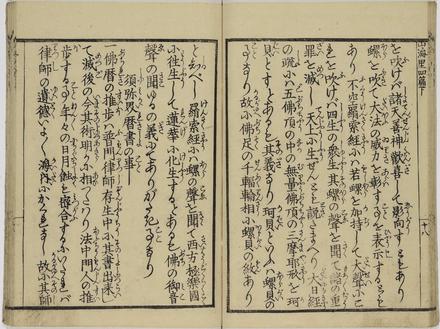 山海里四篇下
を吹けバ諸天善神歓喜して影向すともあり
螺を吹て大法の威力を彰すことを表示することも
あり 不空羂索経に若螺を加持して
を吹けバ四生の衆生其螺の声を聞て諸の重
罪を滅し 天上に生ぜんとも説たまへり 大日経
の疏に五佛頂の中の無量佛頂の三摩耶形を珂
貝とすとあるも其義なり 珂貝とハ螺貝の
なり 故に佛足の千輻輪相に螺貝の紋あり
十八
としるべし 羂索経に螺の聲を聞て西方極樂國
に往生して蓮華に化生するとあるも佛の御音
聲の聞ゆるの義にてありがたき事なり
須弥界暦書の事
一佛暦の推歩ハ普門律師存生中に其書出来し
て滅後の今其術明かに指たり 法中門人の推
歩する年々の日月蝕を合する
律師の遺徳 故に其師